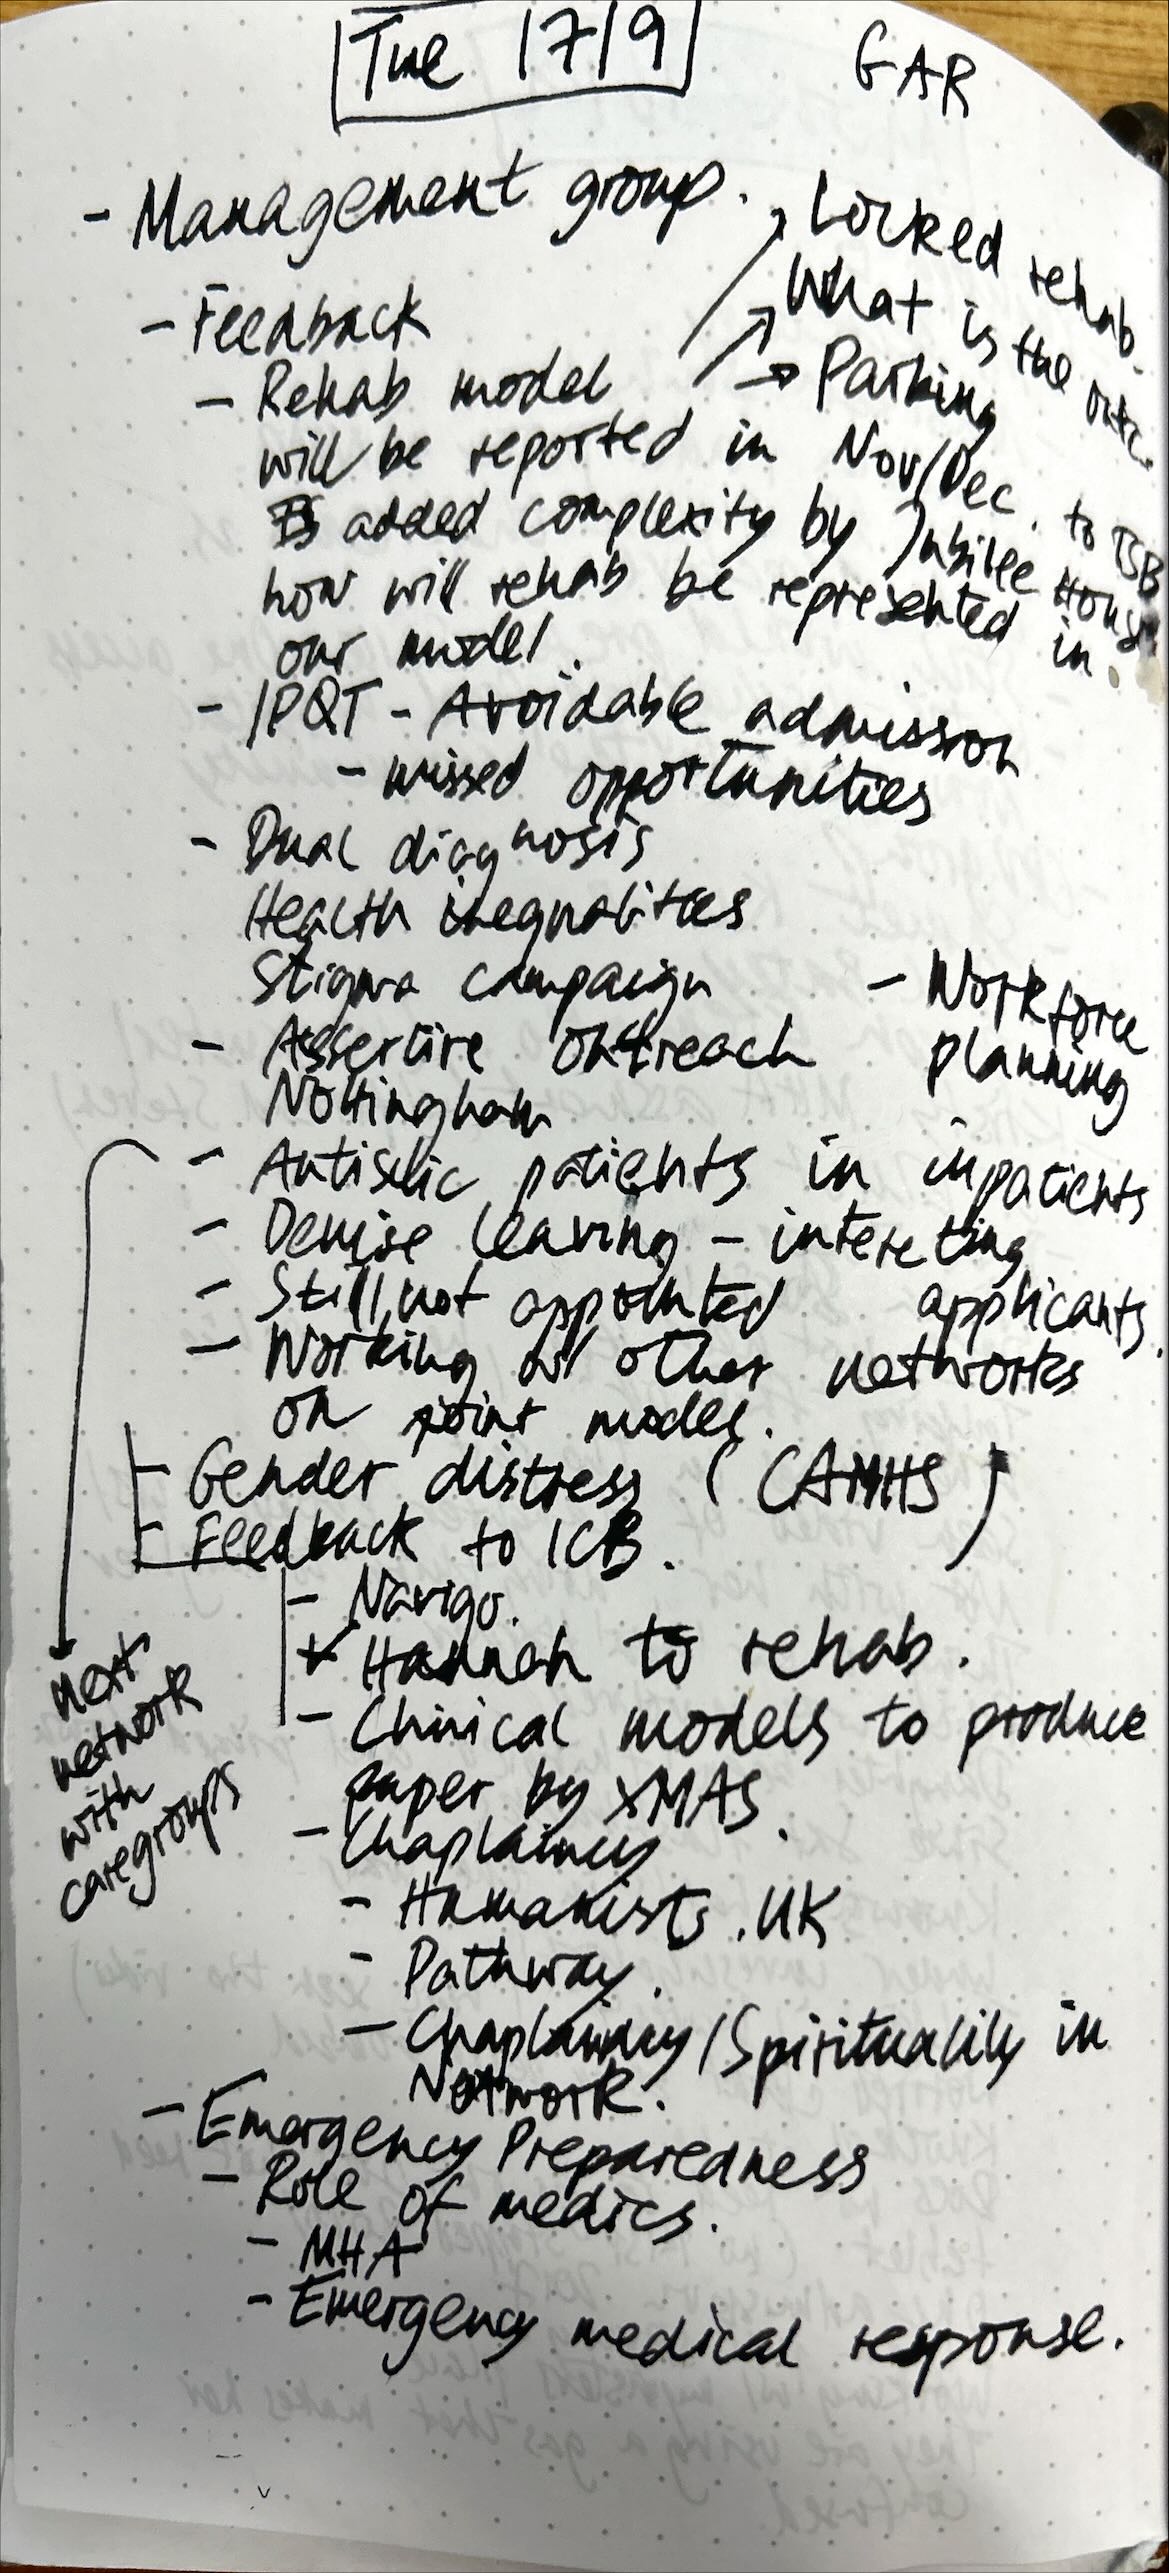 Tue 17/9
GAR
- Management group.
Locked rehab.
What is the
Parking
- Feedback
- Rehab model
will be reported in Nov/Dec. to
added complexity by Jubilee House
how will rehab be represented in
our model.
- IPQT - Avoidable admission
- missed opportunities
- Dual diagnosis
Health inequalities
Stigma campaign
- Workforce
planning
- Assertive outreach
Nottingham
- Autistic patients in inpatients
- Denise leaving - intereting
applicants.
- Still not appointed
- Working w/ other networks
on joint model.
- Gender distress (CAMHS)
- Feedback to ICB.
- Navigo.
Hannah to rehab.
- Clinical models to produce
paper by XMAS.
- Chaplaincy
- Humanists.UK
- Pathway.
- Chaplaincy/Spirituality in
Network.
next
network
with
caregroups
- Emergency Preparedness
- Role of medics.
- MHA
- Emergency medical response.